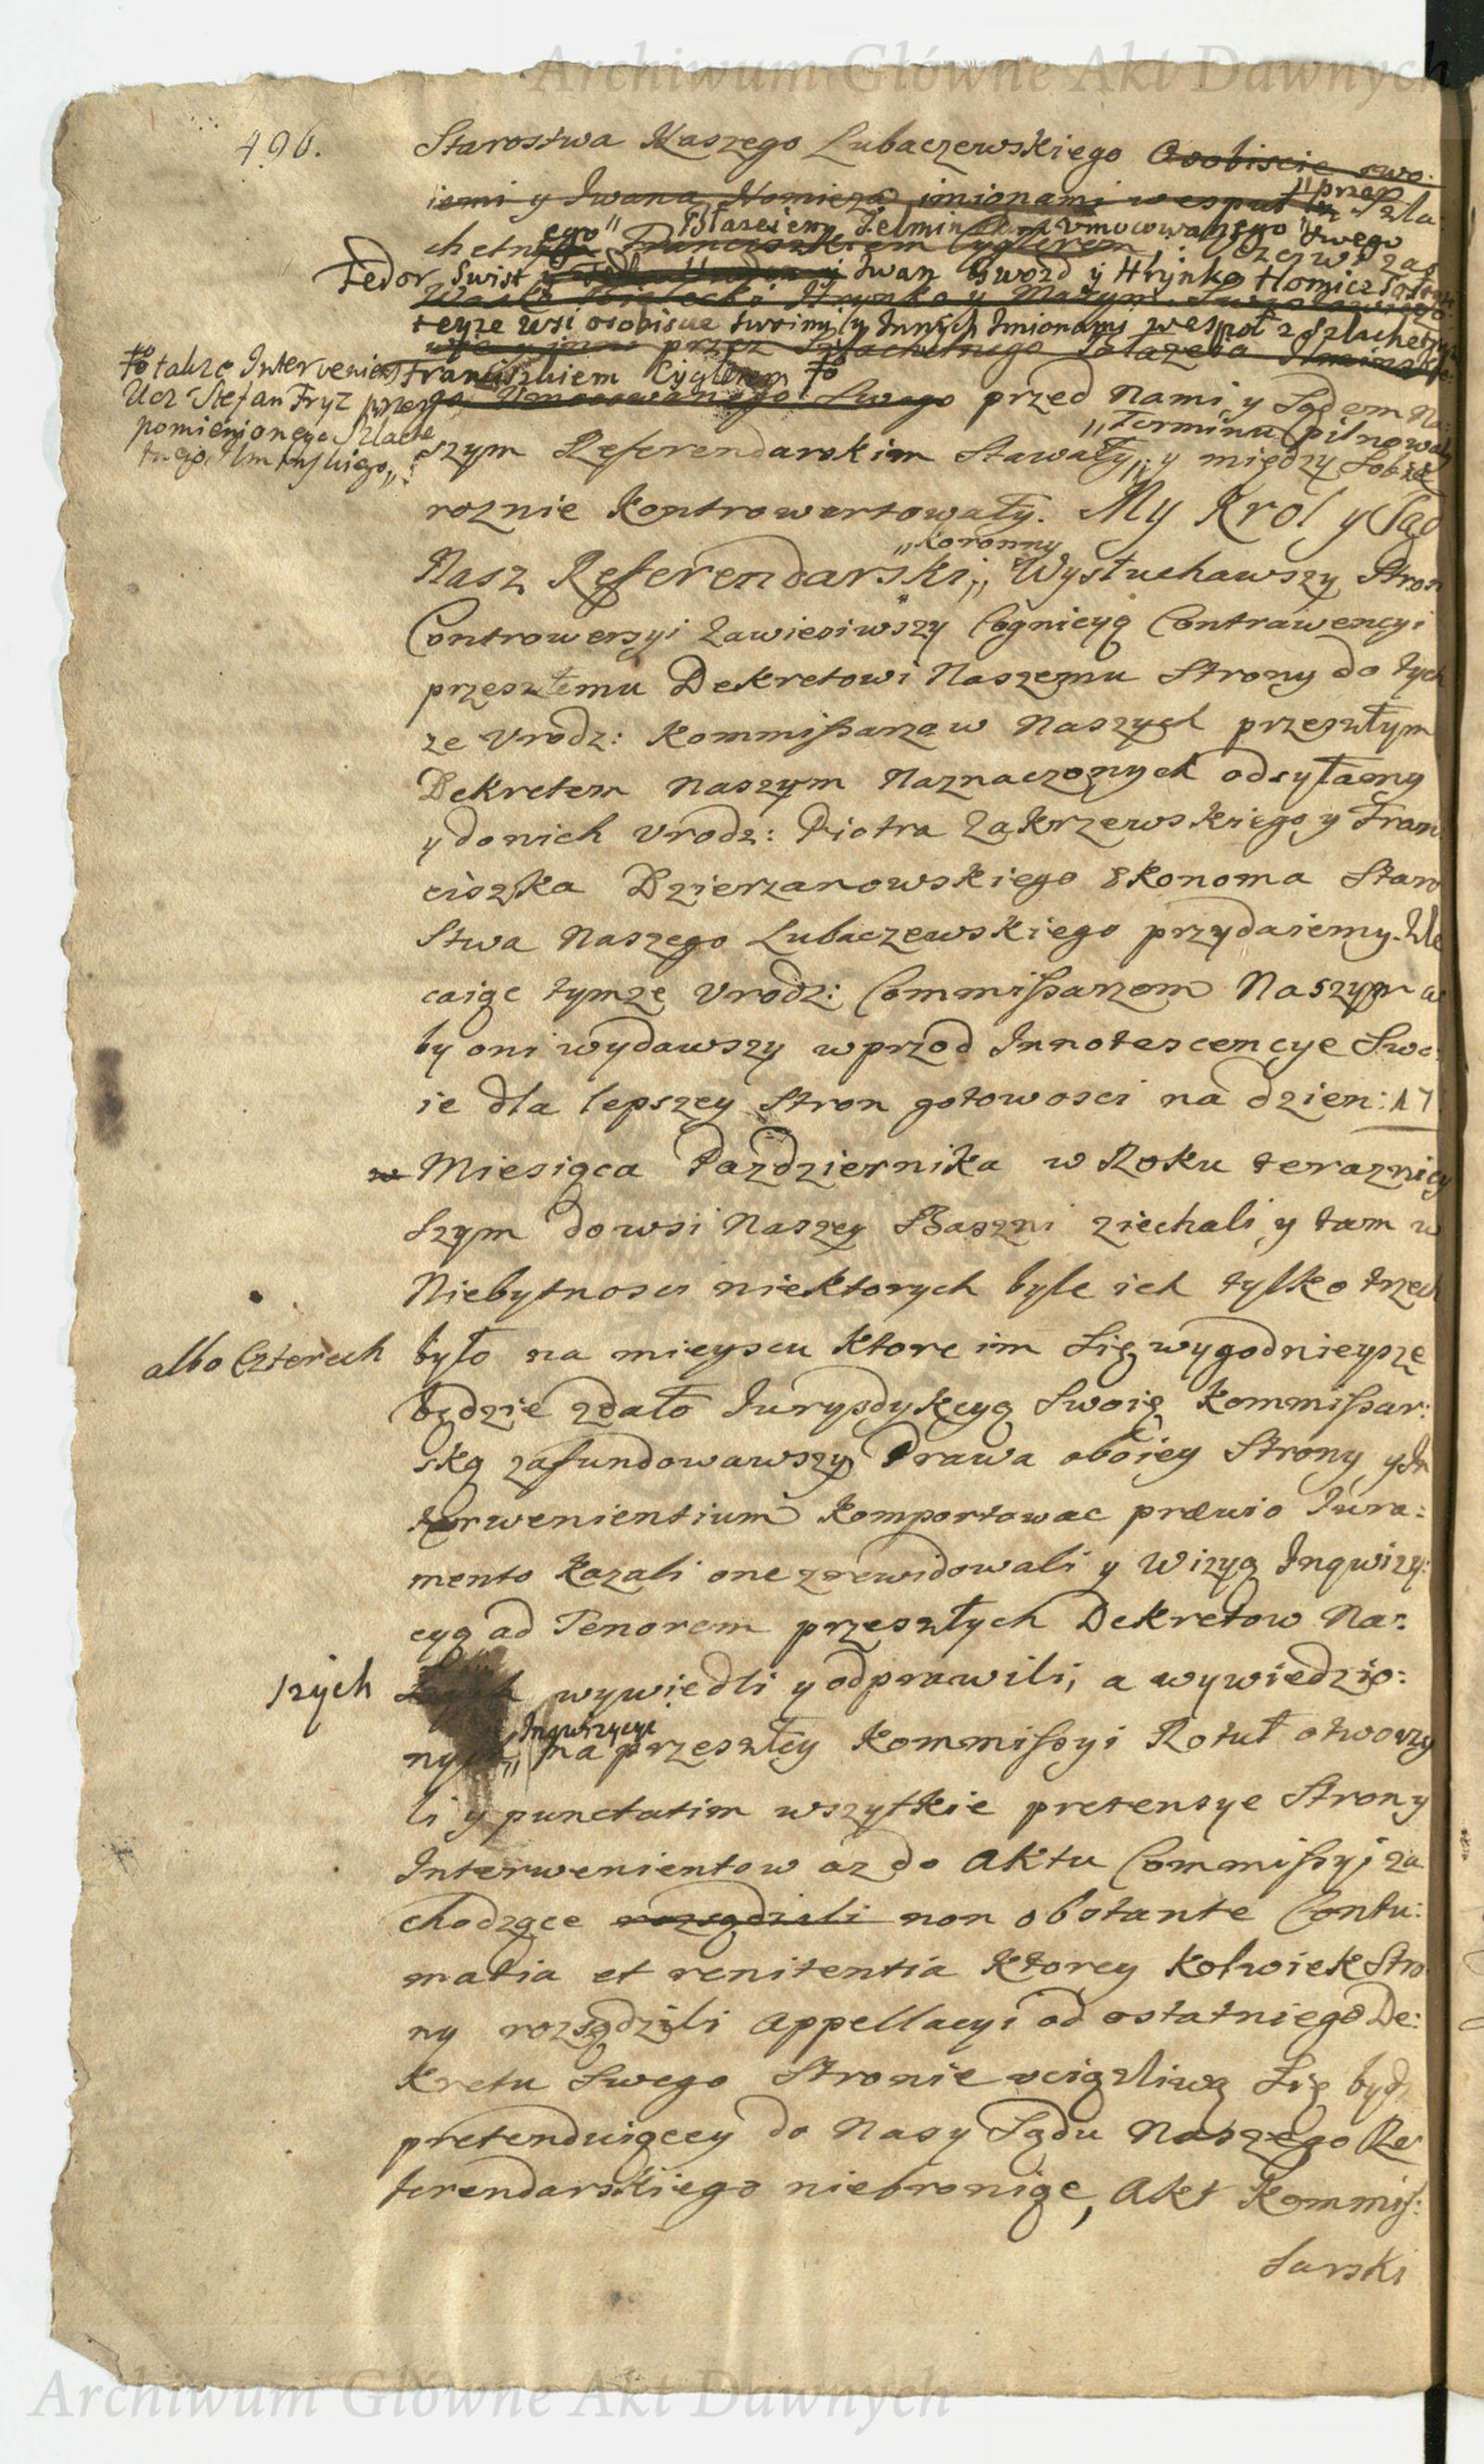 Archiwum Główne Akt Dawnych
496.
Starostwa Naszego Lubaczewskiego Osobiscie swo:
iemi y Iwana Homicza imionami wespuł "przez Szla:
chetnego" Błazeiem Ilminskim umocowanego Swego
Franciszkiem Cyglerem
Fedor Swist y Iwan Gwozd y Hrynko Homicz
teyze wsi osobiscie swoimi y Innych Imionami wespoł z Szlachetnym
przez Szlachetnego
Franciszkiem Cyglerem
Umocowanego Swego przed Nami y Sądem Na:
także Intervenient
Ucz Stefan Fryz przez
pomienionego Szlache
tnego Ilminskiego,,
"Terminu pilnowały
szym Referendarskim Stawały, y między Sobą
roznie Kontrowertowały. My Krol y Sąd
"Koronny
Nasz Referendarski,, Wysłuchawszy Stron
Controwersyi Zawiesiwszy Cognicyą Contrawencyi
przeszłemu Dekretowi Naszemu Strony do tych
ze Urodz: Kommissarzow Naszych przeszłym
Dekretem Naszym Naznaczonych odsyłamy
y do nich Urodz: Piotra Zakrzewskiego y Fran
ciszka Dzierzanowskiego Ekonoma Staro
Stwa Naszego Lubaczewskiego przydaiemy. Zle
caiąc tymze Urodz: Commissarzom Naszym a
by oni wydawszy wprzod Innotescencye Swo:
ie dla lepszey Stron gotowosci na dzien: 17
w Miesiąca Pazdziernika w Roku terazniey
Szym do wsi Naszey Baszni ziechali y tam w
Niebytnosci niektorych byle ich tylko trzech
albo Czterech
było na mieyscu Ktore im Się wygodnieysze
będzie zdało Iurysdykcyą Swoię Kommissar:
ską zafundowawszy Prawa oboiey Strony y In
terwenientium Komportowac prævio Iura:
mento Kazali one zrewidowali y Wizyą Inqwizy:
cyą ad Tenorem przeszłych Dekretow Na:
szych
wywiedli y odprawili, a wywiedzio:
Inqwizycyi
nych,, na przeszłey Kommissyi Rotuł otworzy
li y punctatim wszytkie pretensye Strony
Interwenientow az do Aktu Commissyi za
chodzące rozsądzili non obstante Contu:
matia et renitentia Ktorey Kolwiek Stro
ny rozsądzili Appellacyi od ostatniego De:
Kretu Swego Stronie uciązliwą Się bydz
pretenduiącey do Nasy Sądu Naszego Re
ferendarskiego niebroniąc, Akt Kommis:
Sarski
Archiwum Główne Akt Dawnych